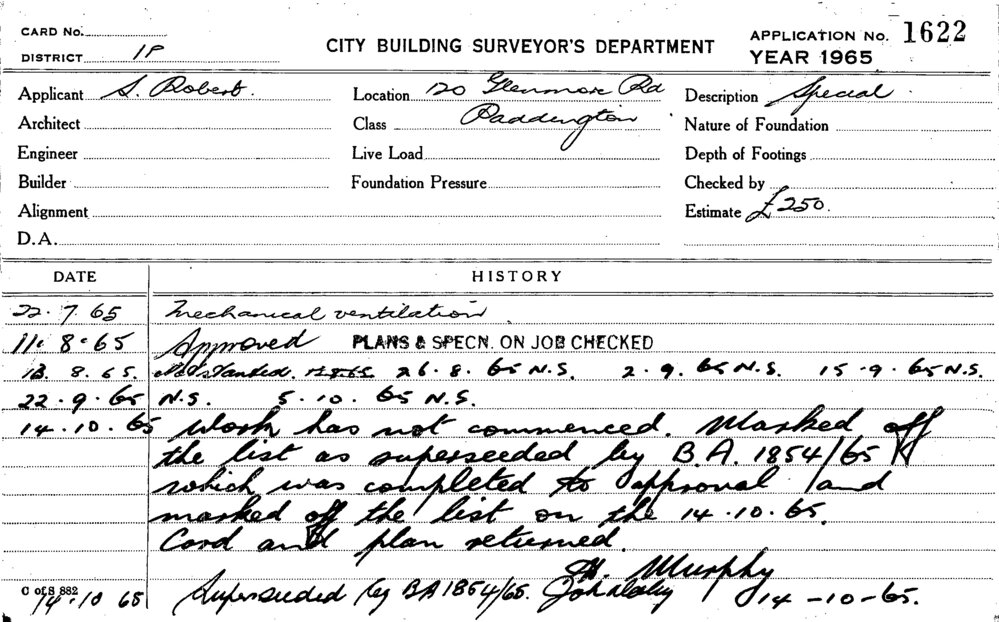 CARD No.
CITY BUILDING SURVEYOR'S DEPARTMENT
APPLICATION No. 1622
DISTRICT 1P
YEAR 1965
Applicant S. Robert. Location 120 Glenmore Rd Description Special
Architect Class Paddington Nature of Foundation
Engineer Live Load Depth of Footings
Builder Foundation Pressure Checked by
Alignment Estimate £250.
D.A.
DATE HISTORY
22.7.65 Mechanical ventilation
11.8.65 Approved PLANS & SPECN. ON JOB CHECKED
13.8.65. Not Started. 26.8.65 N.S. 2.9.65 N.S. 15.9.65 N.S.
22.9.65 N.S. 5.10.65 N.S.
14.10.65 Work has not commenced. Marked off
the list as superseeded by B.A. 1854/65
which was completed to approval and
marked off the list on the 14.10.65.
Card and plan returned.
Murphy
C of S 882
14.10 65 Superseeded by BA 1854/65. 14-10-65.